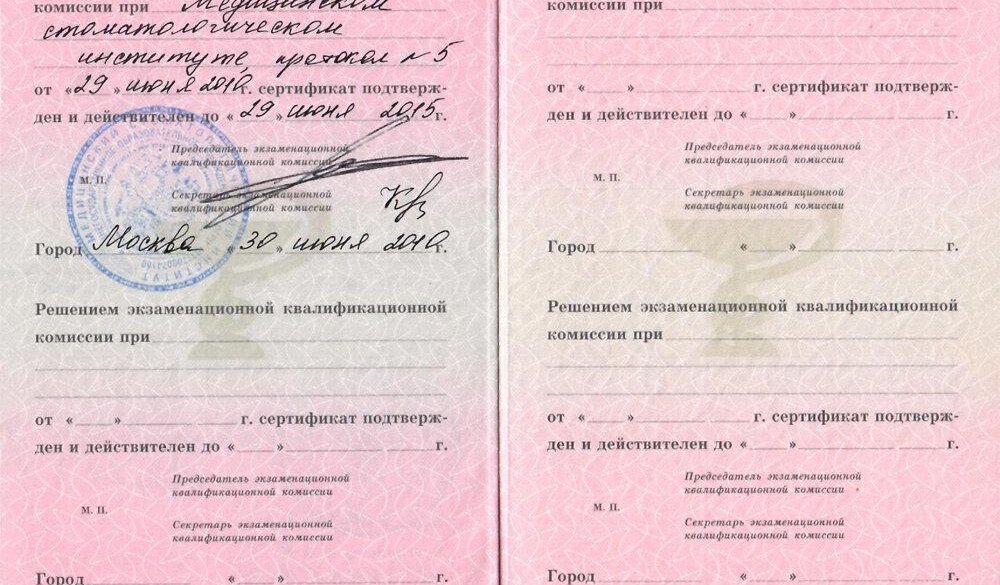 комиссии при Медицинском
стоматологическом
институте, протокол № 5
от «29» июня 2010 г. сертификат подтверж-
ден и действителен до «29» июня 2015 г.
Председатель экзаменационной
квалификационной комиссии
М. П.
Секретарь экзаменационной
квалификационной комиссии
Город Москва «30» июня 2010 г.
Решением экзаменационной квалификационной
комиссии при
от « » г. сертификат подтверж-
ден и действителен до « » г.
Председатель экзаменационной
квалификационной комиссии
М. П.
Секретарь экзаменационной
квалификационной комиссии
Город « » г.
комиссии при
от « » г. сертификат подтверж-
ден и действителен до « » г.
Председатель экзаменационной
квалификационной комиссии
М. П.
Секретарь экзаменационной
квалификационной комиссии
Город « » г.
Решением экзаменационной квалификационной
комиссии при
от « » г. сертификат подтверж-
ден и действителен до « » г.
Председатель экзаменационной
квалификационной комиссии
М. П.
Секретарь экзаменационной
квалификационной комиссии
Город « » г.